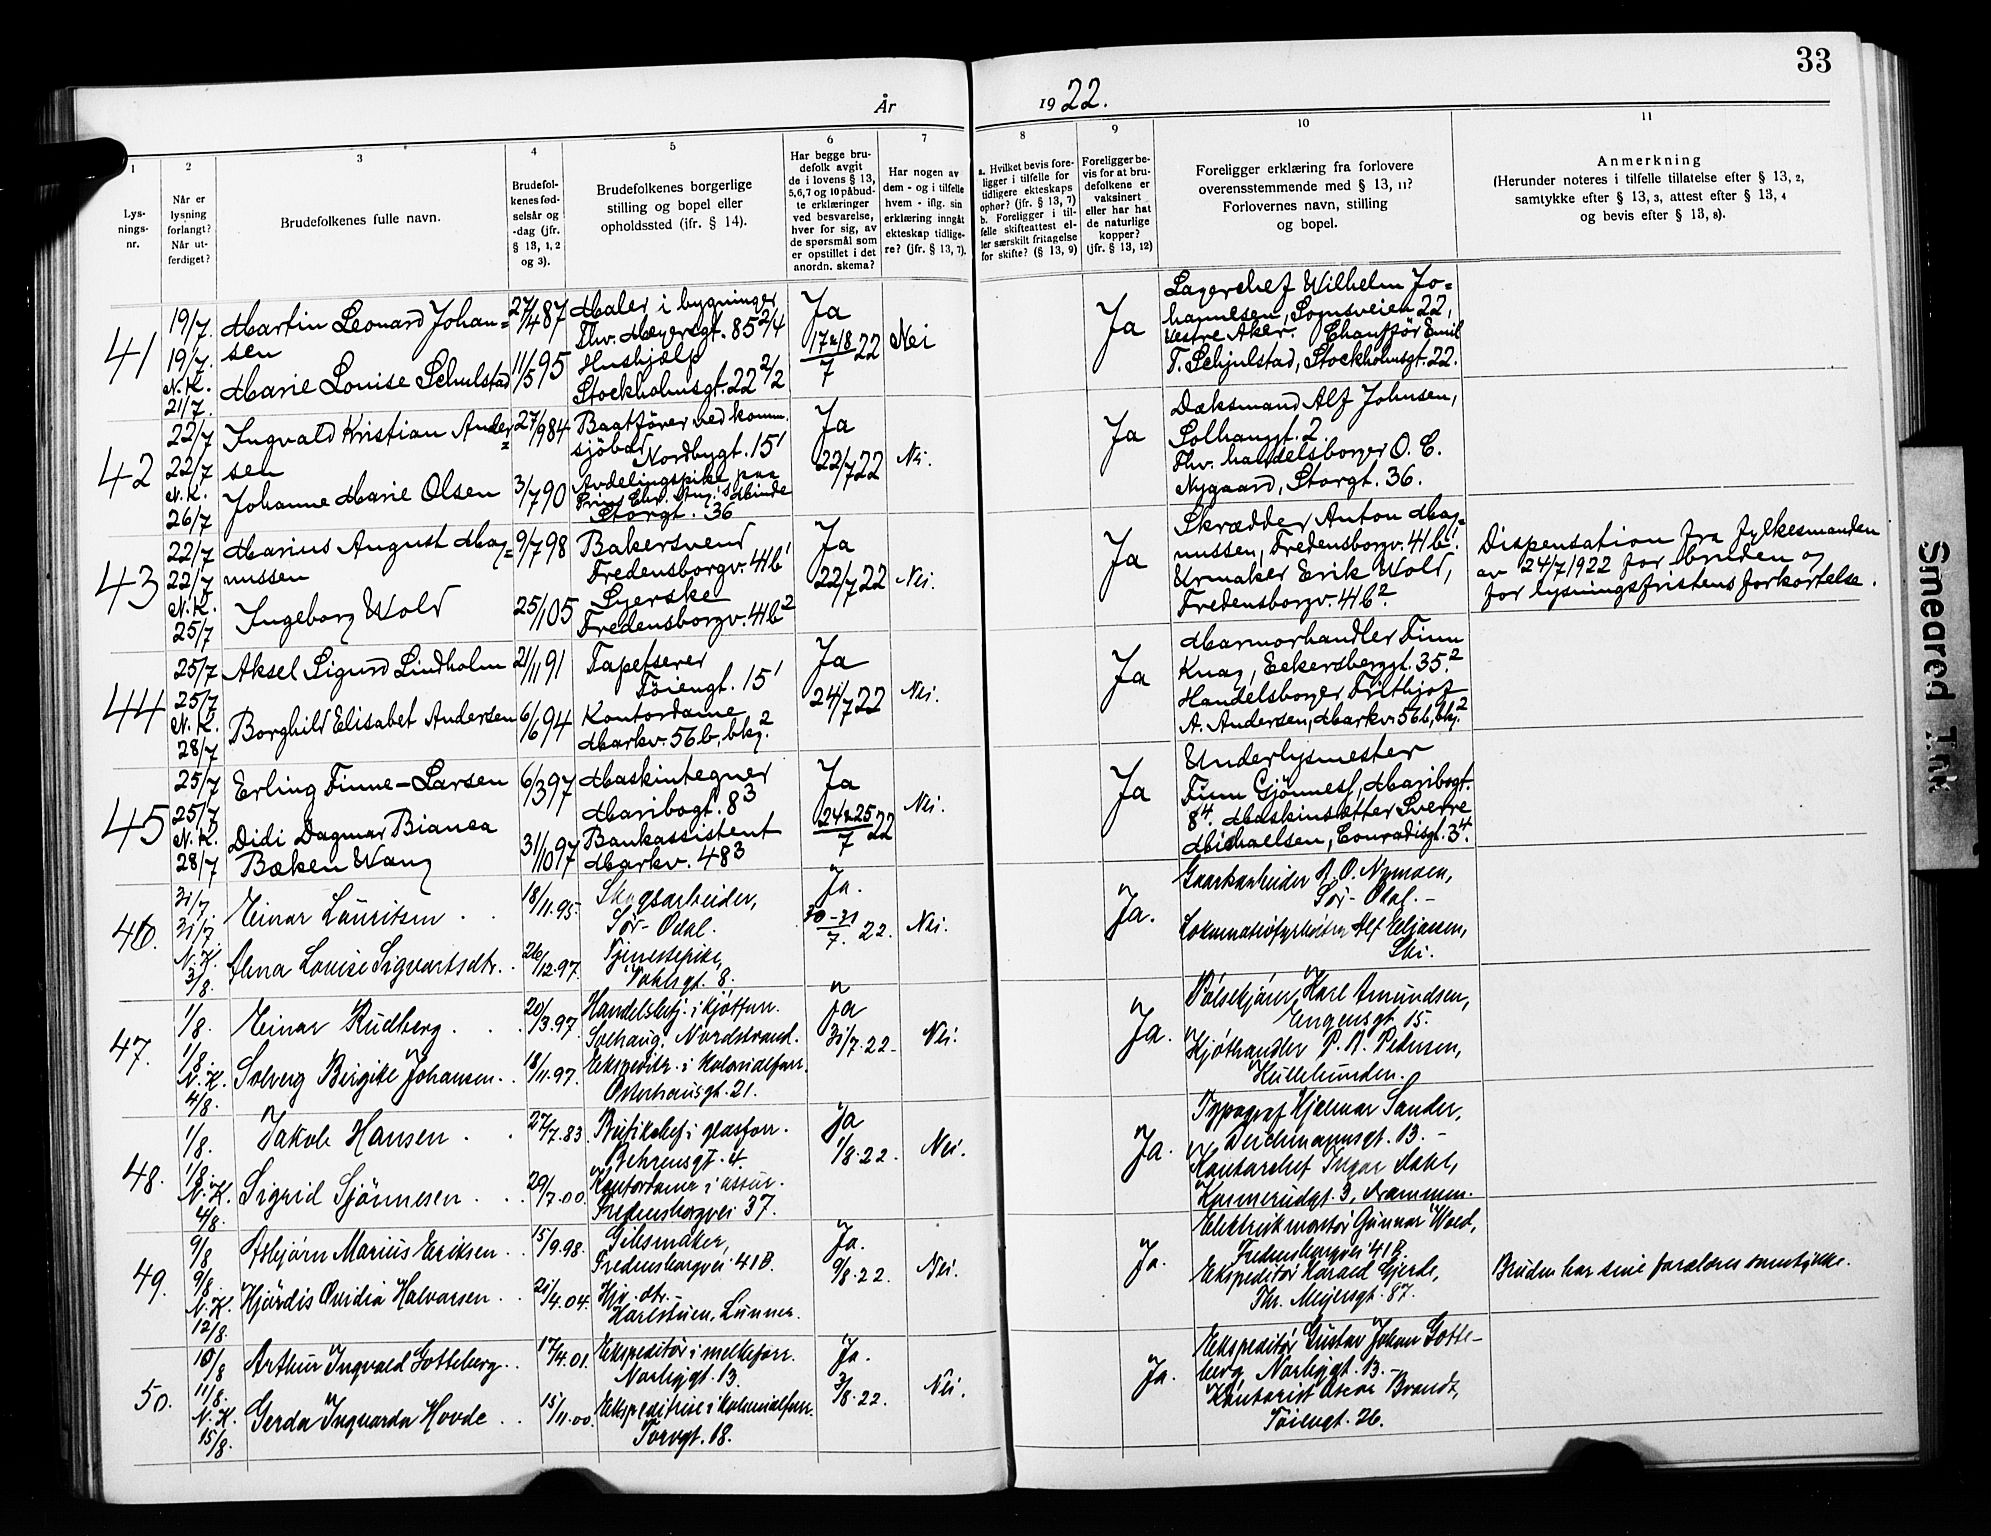 33
År 1922.
1
Lys-
nings-
nr.
2
Når er
lysning
forlangt?
Når ut-
ferdiget?
3
Brudefolkenes fulle navn.
4
Brudefol-
kenes fød-
selsår og
-dag (jfr.
§ 13, 1, 2
og 3).
5
Brudefolkenes borgerlige
stilling og bopel eller
opholdssted (jfr. § 14).
6
Har begge bru-
defolk avgit
de i lovens § 13,
5,6,7 og 10 påbud-
te erklæringer
ved besvarelse,
hver for sig, av
de spørsmål som
er opstillet i det
anordn. skema?
7
Har nogen av
dem - og i tilfelle
hvem - iflg. sin
erklæring inngåt
ekteskap tidlige-
re? (jfr. § 13, 7).
8
a. Hvilket bevis fore-
ligger i tilfelle for
tidligere ekteskaps
ophør? (jfr. § 13, 7)
b. Foreligger i til-
felle skifteattest el-
ler særskilt fritagelse
for skifte? (§ 13, 9)
9
Foreligger be-
vis for at bru-
defolkene er
vaksinert
eller har hat
de naturlige
kopper?
(jfr. § 13, 12)
10
Foreligger erklæring fra forlovere
overensstemmende med § 13, 11?
Forlovernes navn, stilling
og bopel.
11
Anmerkning
(Herunder noteres i tilfelle tillatelse efter § 13, 2,
samtykke efter § 13, 3, attest efter § 13, 4
og bevis efter § 13, 8).
41
19/7.
19/7.
N.K.
21/7.
Martin Leonard Johan=
sen
Marie Louise Schulstad
27/4 87
11/5 95
Maler i bygninger
Thv. Meyersgt. 85 2/4
Hushjælp
Stockholmsgt. 22 2/2
Ja
17 & 18/7 22
Nei
Ja
Lagerchef Wilhelm Jo=
hannesen, Sognsveien 22,
Vestre Aker. Chauffør Emil
T. Schjulstad, Stockholmsgt. 22.
42
22/7
22/7
N.K.
26/7
Ingvald Kristian Ander=
sen
Johanne Marie Olsen
27/9 84
3/7 90
Baatfører ved komm.
sjöbad
Nordbygt. 15'
Avdelingspike paa
Prins Chr. Aug.'s Minde
Storgt. 36
Ja
22/7 22
Nei.
Ja
Dæksmand Alf Johnsen,
Solhauggt. 2.
Thv. handelsborger O. C.
Nygaard, Storgt. 36.
43
22/7
22/7
N.K.
25/7
Marius August Mag=
nussen
Ingeborg Wold
9/7 98
25/1 05
Bakersvend
Fredensborgv. 41b'
Syerske
Fredensborgv. 41b2
Ja
22/7 22
Nei.
Ja
Skrædder Anton Mag=
nussen, Fredensborgv. 41b'.
Urmaker Erik Wold,
Fredensborgv. 41b2.
Dispensation fra fylkesmanden
av 24/7 1922 for bruden og
for lysningsfristens forkortelse.
44
25/7
25/7
N.K.
28/7
Aksel Sigurd Lindholm
Borghild Elisabet Andersen
21/11 91
6/6 94
Tapetserer
Töiengt. 15'
Kontordame
Markv. 56b, bkg. 2
Ja
24/7 22
Nei.
Ja
Marmorhandler Finn
Knag, Eckersberggt. 35.2
Handelsborger Frithjof
A. Andersen, Markv. 56b, bkg.2
45
25/7
25/7
N.K.
28/7
Erling Finne-Larsen
Didi Dagmar Bianca
Bæken Wang
6/3 97
31/10 97
Maskintegner
Maribogt. 8 3
Bankassistent
Markv. 48 3
Ja
24 & 25/7 22
Nei.
Ja
Underlysmester
Finn Gjönnes, Maribogt.
8 4. Maskinsetter Sverre
Michaelsen, Conradisgt. 3 4.
46.
31/7
31/7
N.K.
3/8.
Einar Lauritsen
Alma Louise Sigvartsdtr.
18/11.95.
26/12.97.
Skogsarbeider,
Sør-Odal.
Tjenestepike,
Vahlsgt. 8.
Ja.
30-31/7. 22.
Nei.
Ja.
Gaardarbeider A. O. Nymoen,
Sør-Odal.-
Lokomotivfyrbøter Alf Eljassen,
Ski.
47.
1/8.
1/8.
N.K.
4/8.
Einar Rudberg.
Solveig Birgite Johansen.
20/3.97.
18/11.97.
Handelsbetj. i kjøttforr.
Solhaug, Nordstrand.
Ekspeditr. i kolonialforr.
Osterhausgt. 21.
Ja
31/7.22.
Nei.
Ja.
Pølsekjører Karl Amundsen,
Engensgt. 15.
Kjøthandler P. A. Pedersen,
48.
1/8.
1/8.
N.K.
4/8.
Jakob Hansen.
Sigrid Sjönnesen.
27/7.83.
29/7.00.
Butikchef i glasforr.
Behrensgt. 4.
Kontordame i assur.
Fredensborgvei 37.
Ja
1/8.22.
Nei.
Ja.
Typograf Hjalmar Sander,
Deichmannsgt. 13.-
Kontorchef Ingar Dahl,
3, Drammen.
49.
9/8
9/8.
N.K.
12/8.
Asbjørn Marius Eriksen.
Hjördis Ovidia Halvorsen.
15/9.98.
21/4.04.
Gibsmaker,
Fredensborgvei 41B.
Hjv. dtr.
Karlstuen, Lunner.
Ja.
9/8.22.
Nei.
Ja.
Elektrikmontør Gunnar Wold,
Fredensborgvei 41B.
Ekspeditør Harald Gjerde,
Thr. Meyersgt. 87.
Bruden har sine forældres samtykke.
50.
10/8
11/8.
N.K.
15/8.
Arthur Ingvald Gotteberg.
Gerda Ingvarda Hovde.
17/4.01.
15/11.00.
Ekspeditør i melkeforr.
Norbygt. 13.
Ekspeditrise i kolonialforr.
Torvgt. 18.
Ja.
3/8.22.
Nei.
Ja.
Ekspeditør Gustav Johan Gotte-
berg, Norbygt. 13.-
Kontorist Oscar Brandt,
Tøiengt. 26.
Smeared Ink